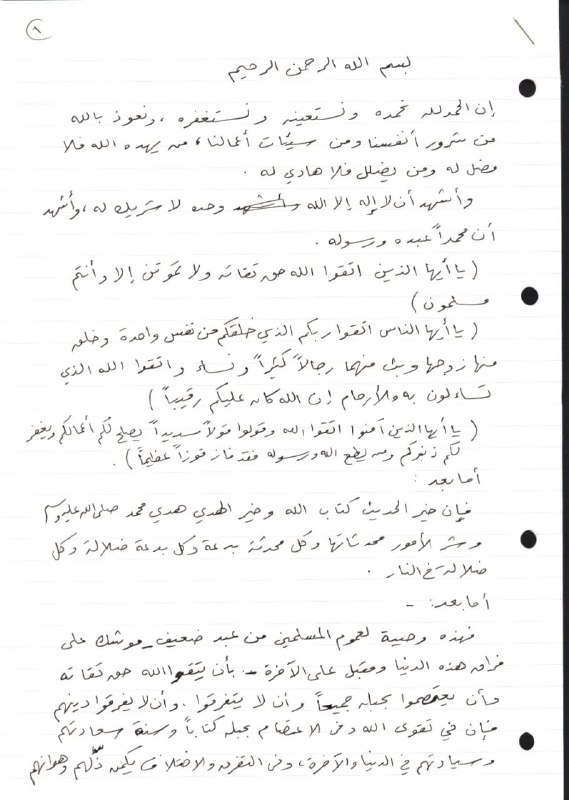 ١
بسم الله الرحمن الرحيم
إن الحمد لله نحمده ونستعينه ونستغفره ، ونعوذ بالله
من شرور أنفسنا ومن سيئات أعمالنا ، من يهده الله فلا
مضل له ومن يضلل فلا هادي له .
وأشهد أن لا إله إلا الله وحده لا شريك له ، وأشهد
أن محمداً عبده ورسوله .
( يا أيها الذين اتقوا الله حق تقاته ولا تموتن إلا وأنتم
مسلمون )
( يا أيها الناس اتقوا ربكم الذي خلقكم من نفس واحدة وخلق
منها زوجها وبث منهما رجالاً كثيراً ونساء واتقوا الله الذي
تساءلون به والأرحام إن الله كان عليكم رقيباً )
( يا أيها الذين آمنوا اتقوا الله وقولوا قولاً سديداً يصلح لكم أعمالكم ويغفر
لكم ذنوبكم ومن يطع الله ورسوله فقد فاز فوزاً عظيماً ) .
أما بعد :
فإن خير الحديث كتاب الله وخير الهدي هدي محمد صلى الله عليه وسلم
وشر الأمور محدثاتها وكل محدثة بدعة وكل بدعة ضلالة وكل
ضلالة في النار .
أما بعد : -
فهذه وصية لعموم المسلمين من عبد ضعيف - موشك على
فراق هذه الدنيا ومقبل على الآخرة - بأن يتقوا الله حق تقاته
وأن يعتصموا بحبله جميعاً وأن لا يتفرقوا . وأن لا يفرقوا دينهم
فإن في تقوى الله وفي الاعتصام بحبله كتاباً وسنة سعادتهم
وسيادتهم في الدنيا والآخرة ، وفي التفرق والاختلاف يكمن ذلهم وهوانهم